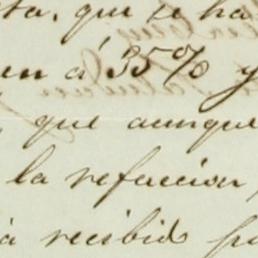 ta, que se ha
en á 35% y
que aunque
la refaccion,
á recibido